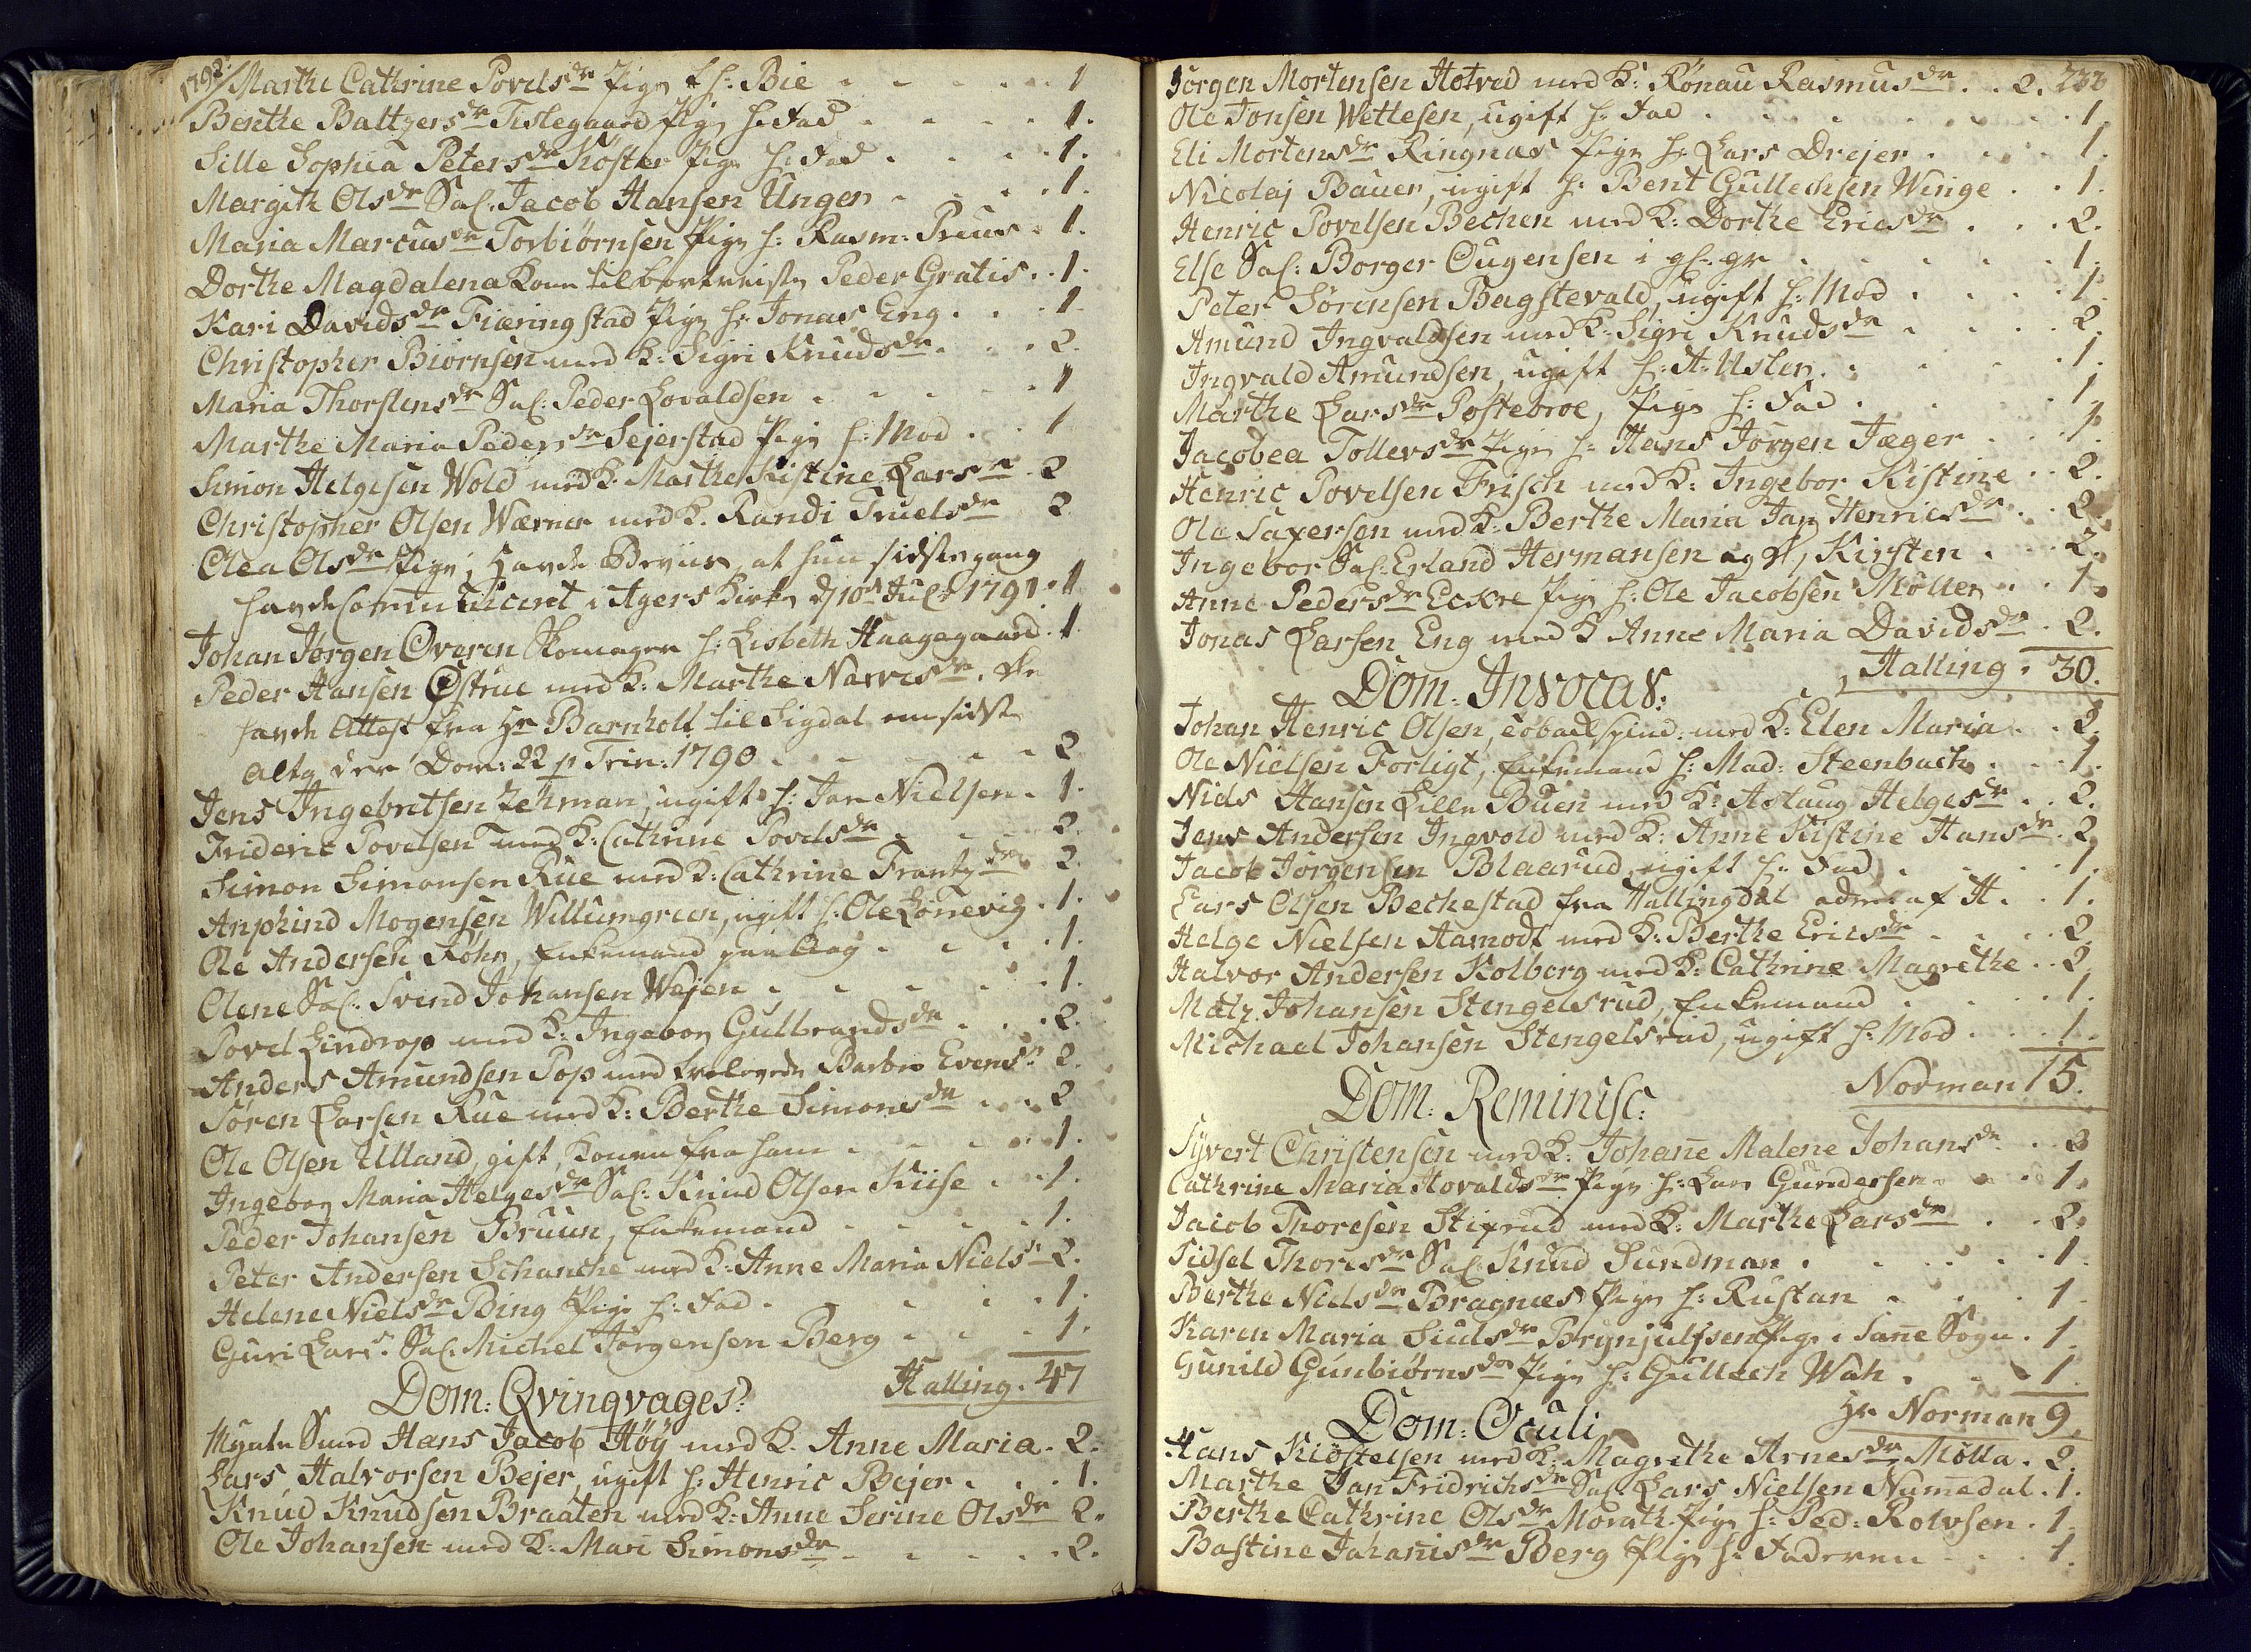 1792. Marthe Cathrine Povelsdr Pige h: Bie 1
Benthe Baltzersdr Tislegaard Pige h: Fad 1.
Sille Sophia Petersdr Koster Pige h: Fad 1.
Margith Olsdr Sal. Jacob Hansen Unger 1.
Maria Marcusdr Torbiørnsen Pige h: Rasm: Preus 1.
Dorthe Magdalena Kone til bortreiste Peder Gratis 1.
Kari Davidsdr Fiæringstad Pige h: Jonas Eng 1
Christopher Biørnsen med K: Sigri Knudsdr 2.
Maria Thorstensdr Sal: Peder Lovaldsen 1
Marthe Maria Pedersdr Sejerstad Pige h: Mod 1
Simon Helgesen Wold med K. Marthe Kistine Larsdr 2
Christopher Olsen Wærner med K. Randi Truelsdr 2
Olea Olsdr Pige, havde Beviis, at hun sidste gang
havde Communiceret i Agers Kirke d 10de Jul: 1791 1
Johan Jørgen Overen Skomager h: Lisbeth Haagegaard 1.
Peder Hansen Østrue med K: Marthe Narvesdr. De
havde Attest fra Hr Barnholt til Sigdal om sidste
Altg. der Dom: 22 p Trin: 1790 2
Jens Ingebretsen Zehman, ugift h: Jan Nielsen 1.
Frideric Povelsen med K: Cathrine Povelsdr 2.
Simon Simonsen Rue med K: Cathrine Frantzdr 2.
Anphind Mogensen Willumgreen, ugift h: Ole Lønevig 1.
Ole Andersen Røhn, Enkemand paa Aag 1.
Olene Sal: Svend Johansen Wejen 1.
Povel Lindrop med K: Ingebor Gulbrandsdr 2.
Anders Amundsen Pop med trolovede Barbro Evensd 2.
Søren Larsen Rue med K: Berthe Simonsdr 2
Ole Olsen Ulland, gift, Konen fra ham 1.
Ingebor Maria Helgesdr Sal: Knud Olsen Kiise 1.
Peder Johansen Bruun, Enkemand 1.
Peter Andersen Schanche med K: Anne Maria Nielsd 2.
Helene Nielsdr Bing Pige h: Fad 1.
Guri Larsd Sal. Michel Jørgensen Berg 1.
Halling. 47
Dom: Qvinqvages:
Mynte Smed Hans Jacob Høÿ med K. Anne Maria 2.
Lars Halvorsen Bejer, ugift h: Henric Bejer 1.
Knud Knudsen Braaten med K: Anne Serine Olsdr 2.
Ole Johansen med K: Mari Simonsdr 2.
Jørgen Mortensen Hotved med K: Rønau Rasmusdr 2. 233
Ole Jonsen Wettesen, ugift h: Fad 1.
Eli Mortensdr Ringnæs Pige h: Lars Drejer 1
Nicolaj Bauer, ugift h: Bent Gullechsen Winge 1.
Henric Povelsen Bechen med K: Dorthe Ericsdr 2.
Else Sal: Borger Ougensen i gl. gr 1.
Peter Sørensen Bagstevald, ugift h: Mod 1.
Amund Ingvaldsen med K: Sigri Knudsdr 2.
Ingvald Amundsen, ugift h: A: Usler 1.
Marthe Larsdr Postebroe, Pige h: Fad 1.
Jacobea Tollevsdr Pige h: Hans Jørgen Jæger 1.
Henric Povelsen Frisch med K: Ingebor Kistine 2.
Ole Saxersen med K: Berthe Maria Jan Henricsdr 2.
Ingebor Sal. Erland Hermansen og D, Kirsten 2.
Anne Pedersdr Eckre Pige h: Ole Jacobsen Møller 1.
Jonas Larsen Eng med K Anne Maria Davidsdr 2.
Halling. 30.
Dom: Invocav:
Johan Henric Olsen, Tobacspind. med K: Elen Maria 2.
Ole Nielsen Forligt, Enkemand h: Mad: Steenbuch 1.
Niels Hansen Lille Buen med K: Aslaug Helgesdr 2.
Jens Andersen Ingvold med K: Anne Kistine Hansdr 2.
Jacob Jørgensen Blaarud, ugift h: Fad 1.
Lars Olsen Bechestad fra Hallingdal adm: af H. 1.
Helge Nielsen Aamodt med K: Berthe Ericsdr 2
Halvor Andersen Kolberg med K: Cathrine Magrethe 2.
Matz Johansen Stengelsrud, Enkemand 1.
Michael Johansen Stengelsrud, ugift h: Mod 1.
Norman 15.
Dom: Reminisc:
Syvert Christensen med K: Johane Malene Johansdr 2
Cathrine Maria Hovaldsdr Pige h: Lars Gundersen 1.
Jacob Thoresen Stixrud med K: Marthe Larsdr 2.
Sidsel Thoresdr Sal: Knud Sundman 1.
Berthe Nielsdr Bragnæs Pige h: Rustan 1
Karen Maria Siulsdr Brynjulfsen Pige i Sane Sogn 1.
Gunild Gunbiørnsdr Pige h: Gullech Wah 1.
Hr Norman 9.
Dom: Oculi
Hans Kiøstelsen med K: Magrethe Arnesdr Mølla 2.
Marthe Jan Fridrichsdr Sal. Lars Nielsen Numedal 1.
Berthe Cathrine Olsdr Morath Pige h: Ped: Rolvsen 1.
Bastine Johanisdr Berg Pige h: Faderen 1.